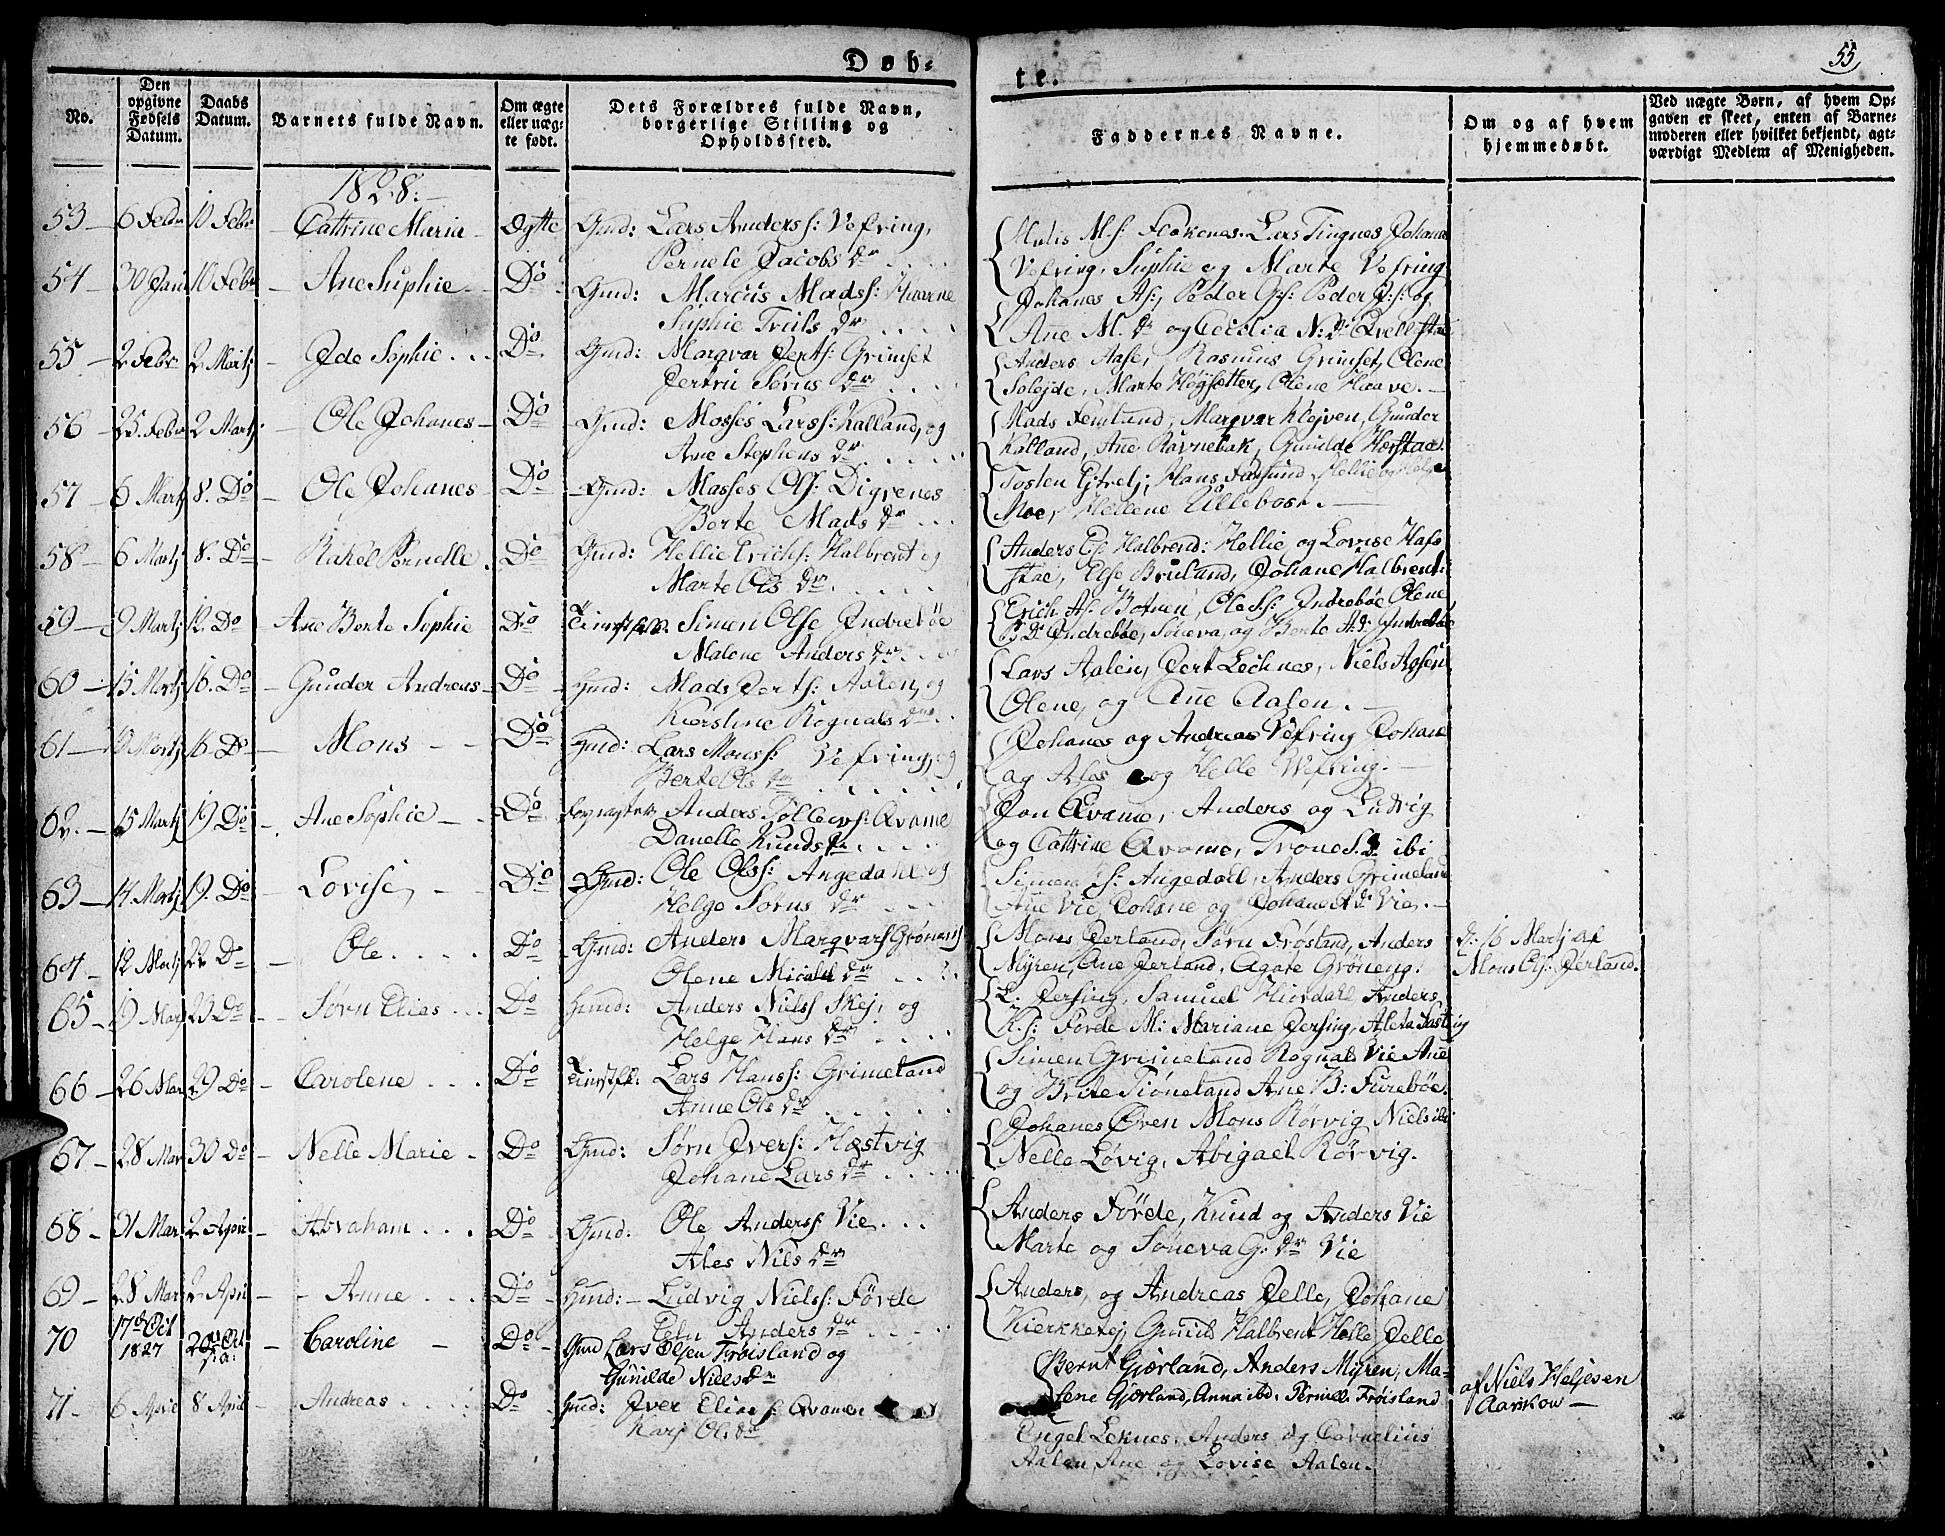 Døb-
te.
55
No.
Den opgivne Fødsels Datum.
Daabs Datum.
Barnets fulde Navn.
Om ægte eller uæg-
te født.
Dets Forældres fulde Navn,
borgerlige Stilling og
Opholdssted.
Faddernes Navne.
Om og af hvem
hjemmedøbt.
Ved uægte Børn, af hvem Op-
gaven er skeet, enten af Barne-
moderen eller hvilket bekjendt, agt-
værdigt Medlem af Menigheden.
1828.
53 6 Febr 10 Febr Cattrine Maria Ægtte Gmd: Lars Anderss: Vefring,
Pernele Jacobs Dr
M.s: Lars Tingnes Johane
Vefring, Suphie og Marte Vefring
54 30 Jan 10 Febr Ane Suphie Do Gmd: Marcus Madss: Haarne
Suphie Truls Dr
Johanes As: Peder Gs: Peder J:s: og
Ane M. Dr og Cecelia N: Dr
55 2 Febr 2 Martj Jde Sophie Do Gmd: Marqvar Jerts: Grimset
Jertru Sørns Dr
Anders Aase, Rasmus Grimset, Olene
Solejde, Marte Høysetter, Olene Haave.
56 25 Febr 2 Martj Ole Johanes Do Gmd: Mosses Larss: Kalland, og
Ane Stephens Dr
Mads Femland, Marqvar Klejven, Gunder
Kalland, Ane Ravnebak, Gunilde
57 6 Martj 8. Do Ole Johanes Do Gmd: Masses Ols: Digrenes
Berte Mads Dr
Tosten Hans Hellie og Helge
Moe, Hellene Ullebose.
58 6 Martj 8. Do Rakel Pernelle Do Gmd: Hellie Erichs: Halbrent og
Marte Ols Dr
Anders Halbrend: Hellie og Lovise Haf-
stae, Else Bruland, Johane Halbrent:
59 9 Martj 12. Do Ane Berte Sophie Do Simen Olse Jndrebøe
Malene Anders Dr
Erich As: Ole Ss: Jndrebøe Olene
Dr Jndrebøe, Søneva, og Berte A:d: Jndrebøe
60 15 Martj 16. Do Gunder Andreas Do Gmd: Mads Jerts: Aalen, og
Kierstine Rognals Dr
Lars Aalen, Jert Lechnes, Niels
Olene, og Ane Aalen.
61 Martj 16. Do Mons Do Gmd: Lars Monss: Vefring, og
Berte Ols Dr
Johanes og Andreas Vefring Johane
og Ales og Helle Wefring.
62. 15 Martj 19 Do Ane Sophie Do Anders Tollevs: Qvame
Danelle Knuds Dr
Jon Qvame, Anders og Ludvig
og Cattrine Qvame, Trone S. D ibi
63 14 Martj 19. Do Lovise, Do Gmd: Ole Olss: Angedahl og
Helge Sørns Dr
Simen s: Angedall, Anders Grimeland
Ane Vie, Johane og Johane Vie.
64 12 Martj 22 Do Ole Do Gmd: Anders Marqvars Grøneng
Olene Micaul Dr
Mons Jerland, Sørn Frøsland, Anders
Myren, Ane Jerland, Agate Grøneng.
d: 16 Martj af
Mons Ols: Jerland.
65 19 Mar 23 Do Sørn Elias Do Gmd: Anders Nielss Skej, og
Helge Hans Dr
L. Jersing, Samuel Hiordall, Anders
K.s: Førde M: Mariane Jersing,
66 26 Mar 29 Do Carolene Do Lars Hanss: Grimeland
Anne Ols Dr
Simen Grimeland Rognals Vie Ane
og Brite Tiøneland Ane B: Furebøe.
67 28 Mar 30 Do Nelle Marie Do Gmd: Sørn Jvers: Hæstvig
Johane Lars Dr
Johanes Øren Mons Rørvig Niels ibi
Nelle Løvig, Abigael Rørvig.
68 31 Mar 2 April Abraham Do Gmd: Ole Anderss: Vie
Ales Nils Dr
Anders Førde, Knud og Anders Vie
Marte og Søneva G: Dr Vie
69 28 Mar 2 April Anne Do Gmd: Ludvig Nielss: Førde
Elen Anders Dr
Anders, og Andreas Jelle, Johane
Kierkketej Gunild Halbrent Helle Jelle
70 17de Oct 1827 Caroline Do Gmd Lars Olsen Frøisland og
Gunilde Niels Dr
Bernt Gjørland, Anders Myren, Ma-
lene Gjørland, Anna ibd. Pernille Frøisland
af Niels Heljesen
Aarskow
71. 6 April 8 April Andreas Do Gmd: Jver Elias s: Qvamen
Kari Ols Dr
Engel Leknes, Anders og Cornelius
Aalen, Ane og Lovise Aalen.